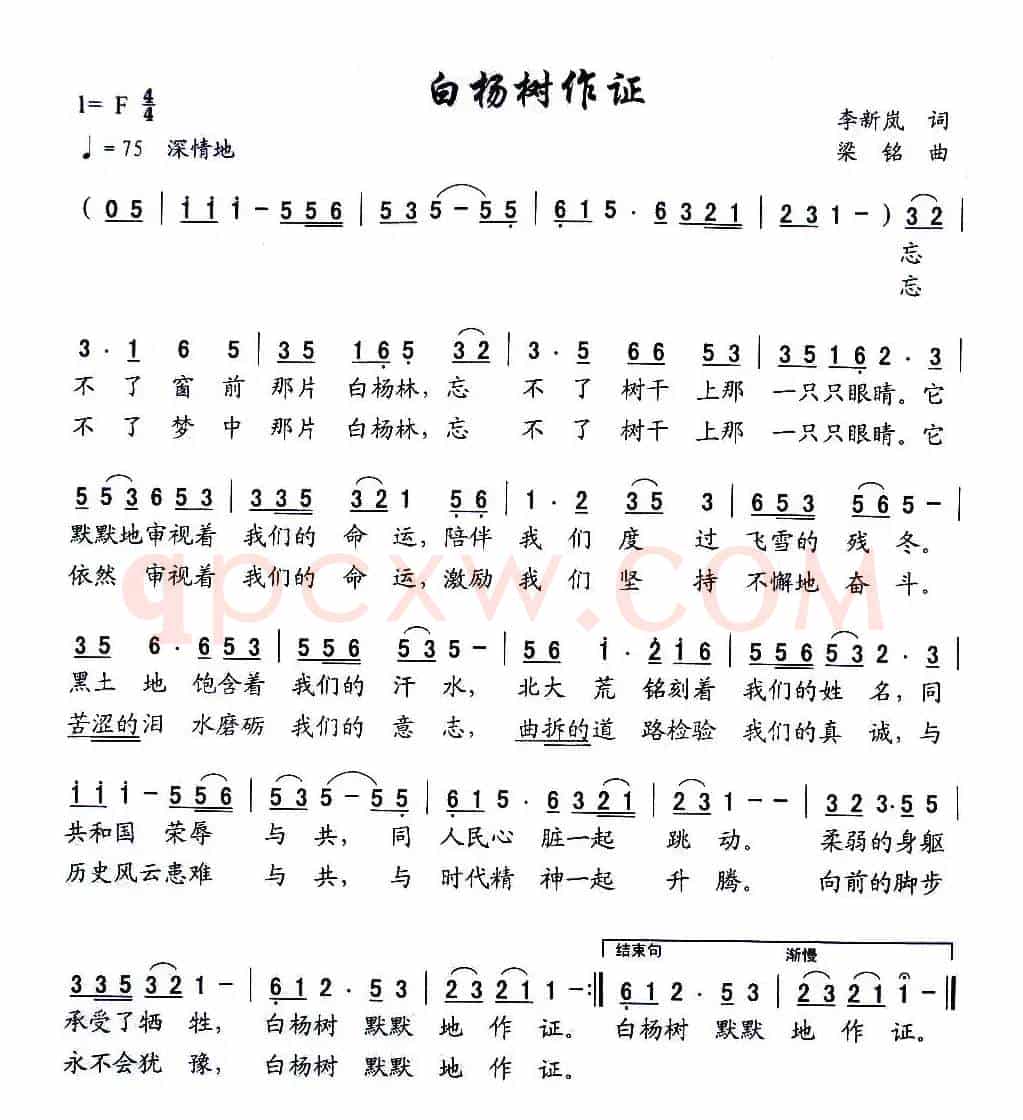 白杨树作证
1= F 4/4
李新岚 词
♩=75 深情地
梁 铭 曲
( 0 5 | i i i - 5 5 6 | 5 3 5 - 5 5 | 6 1 5 · 6 3 2 1 | 2 3 1 - ) 3 2 |
忘
忘
3 · 1 6 5 | 3 5 1 6 5 3 2 | 3 · 5 6 6 5 3 | 3 5 1 6 2 · 3 |
不 了 窗 前 那 片 白杨林，忘 不 了 树干 上那 一只只眼睛。它
不 了 梦 中 那 片 白杨林，忘 不 了 树干 上那 一只只眼睛。它
5 5 3 6 5 3 | 3 3 5 3 2 1 5 6 | 1 · 2 3 5 3 | 6 5 3 5 6 5 - |
默默地审视着 我们的 命 运，陪伴 我 们 度 过 飞雪的 残 冬。
依然 审视着 我们的 命 运，激励 我 们 坚 持 不懈地 奋 斗。
qpcxw.COM
3 5 6 · 6 5 3 | 5 5 6 5 3 5 - | 5 6 i · 2 i 6 | 5 5 6 5 3 2 · 3 |
黑土 地 饱含着 我们的 汗 水， 北大 荒 铭刻着 我们的姓 名，同
苦涩的泪 水磨砺 我们的 意 志， 曲拆的道 路检验 我们的真 诚，与
i i i - 5 5 6 | 5 3 5 - 5 5 | 6 1 5 · 6 3 2 1 | 2 3 1 - - | 3 2 3 · 5 5 5
共和国 荣辱 与 共， 同 人民心 脏一起 跳 动。 柔弱的身躯
历史风云患难 与 共， 与 时代精 神一起 升 腾。 向前的脚步
结束句 渐慢
3 3 5 3 2 1 - | 6 1 2 · 5 3 | 2 3 2 1 1 - :‖ 6 1 2 · 5 3 | 2 3 2 1 1 - ‖
承受了牺 牲， 白杨树 默默 地 作 证。 白杨树 默默 地 作 证。
永不会犹 豫， 白杨树 默默 地 作 证。